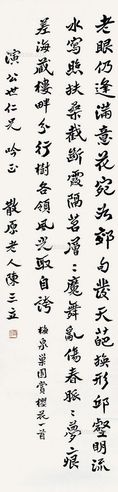 老眼仍逢滿意花宛於郊句發天葩簇形邱壑明流
水寫照扶桑截斷霞隔茗層〻魔舞亂傷春脈〻夢痕
差海藏樓畔分行樹各領風光取自誇 梅泉巢園賞櫻花一首
演公世仁兄 吟正 散原老人陳三立